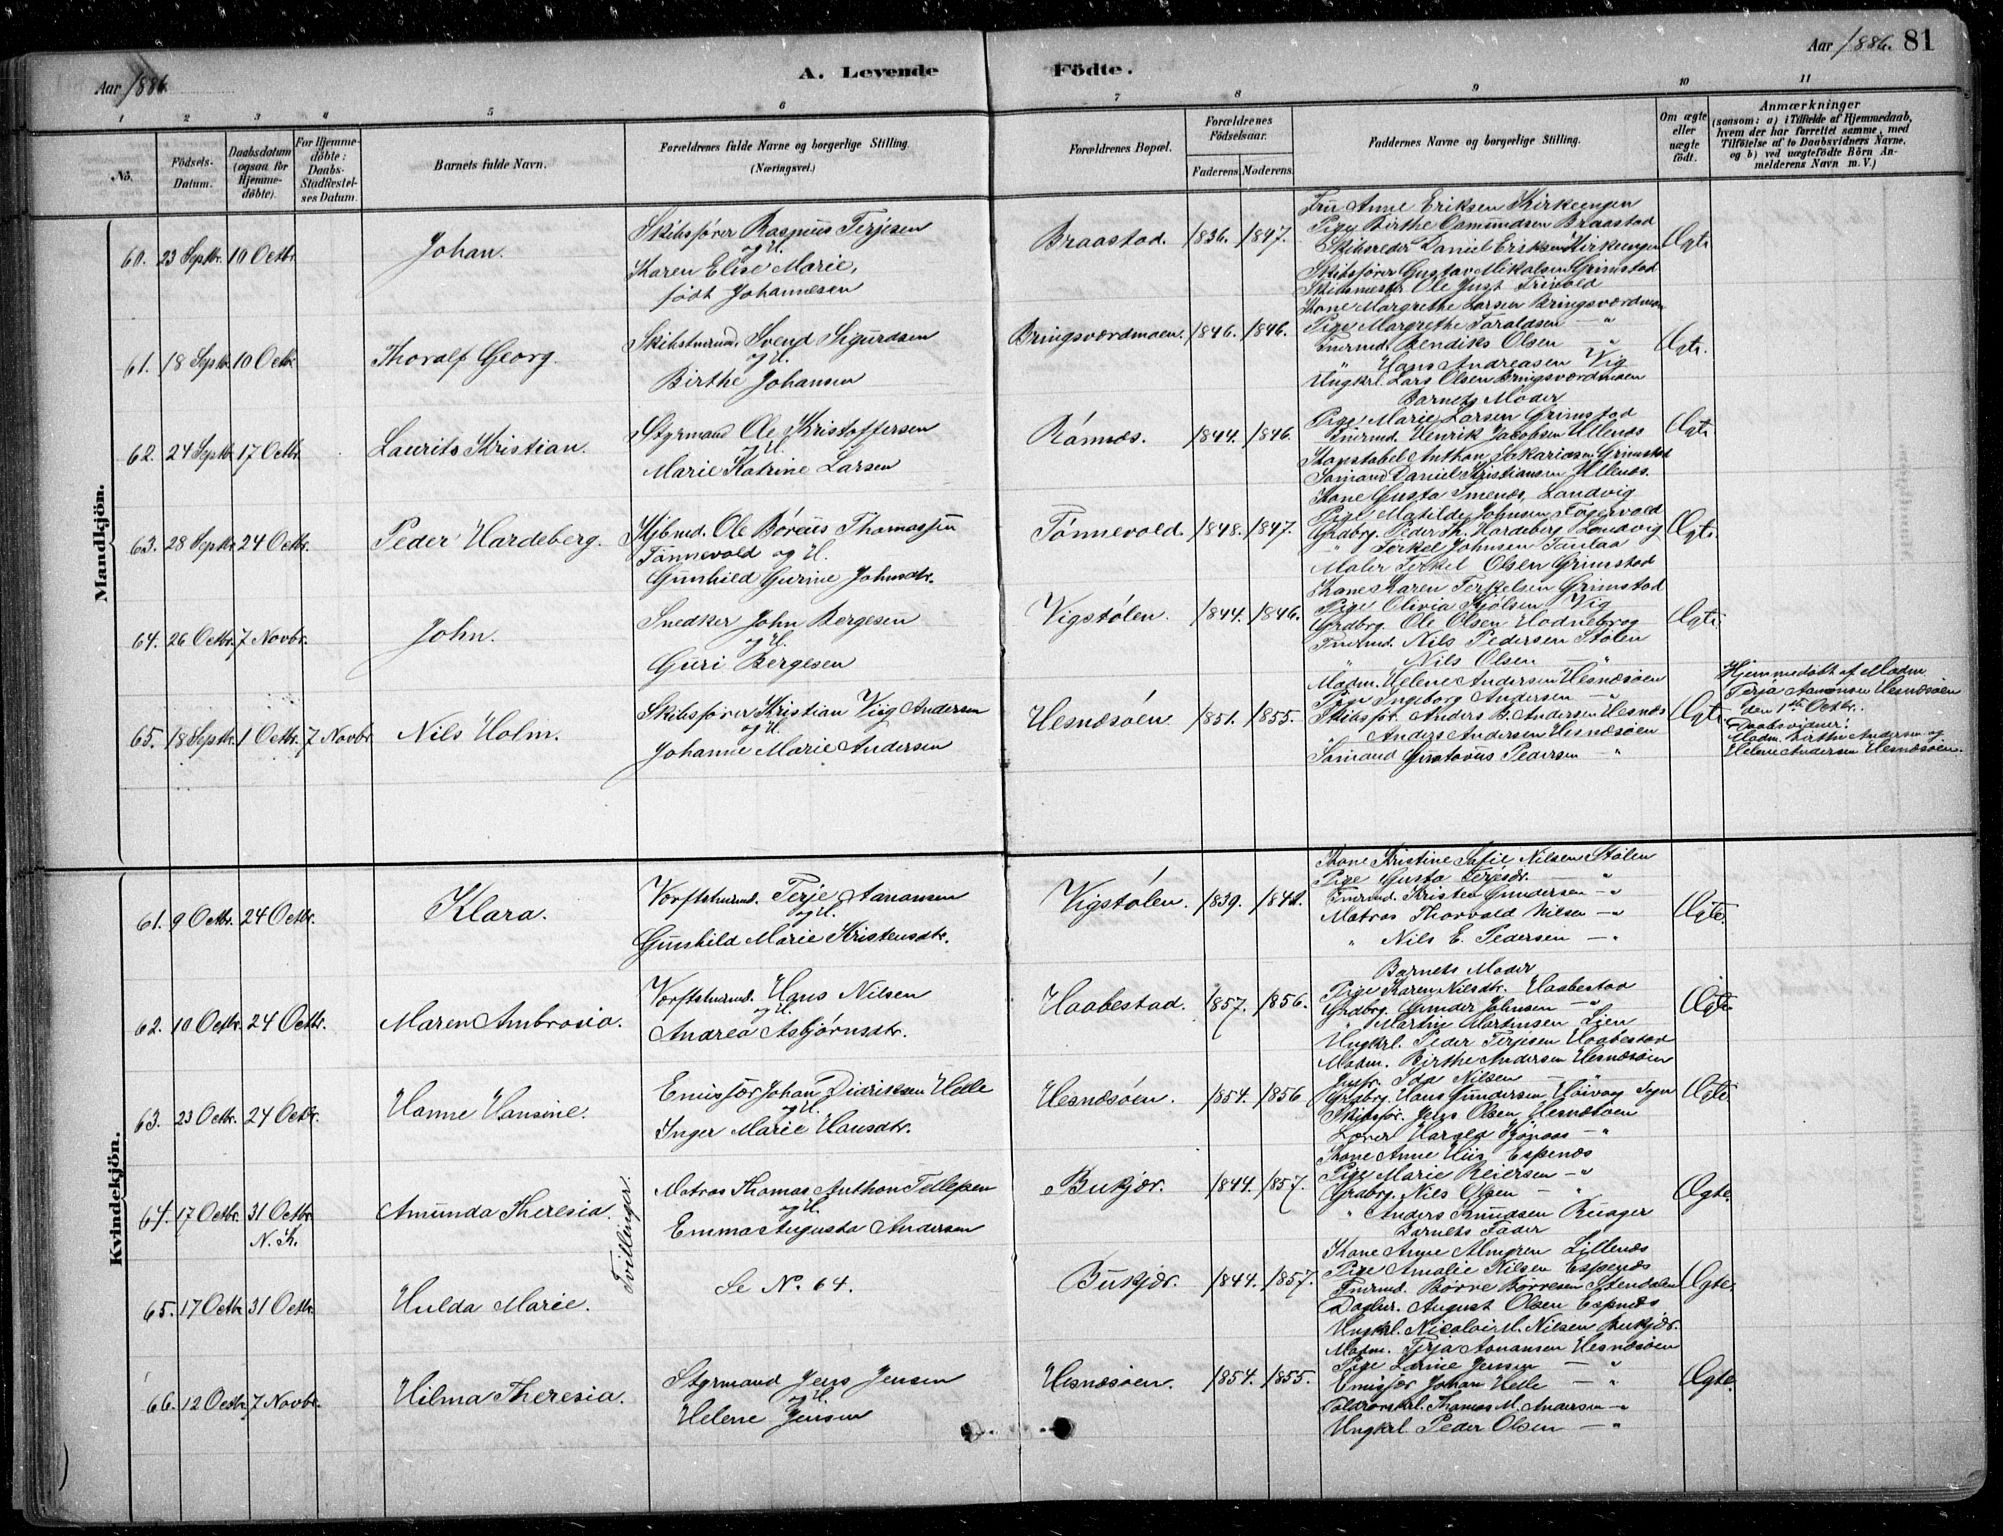 Aar 1886.
A. Levende Födte.
Aar 1886. 81
1 2 3 4 5 6 7 8 9 10 11
No.
Födsels-Datum.
Daabsdatum (ogsaa for Hjemme-døbte).
For Hjemme-döbte: Daabs-Stadfæstelses Datum.
Barnets fulde Navn.
Forældrenes fulde Navne og borgerlige Stilling. (Næringsvei.)
Forældrenes Bopæl.
Forældrenes Födselsaar.
Faderens. Moderens.
Faddernes Navne og borgerlige Stilling.
Om ægte eller uægte födt.
Anmærkninger
(saasom: a) i Tilfælde af Hjemmedaab,
hvem der har forrettet samme, med
Tilföielse af to Daabsvidners Navne,
og b) ved uægtefödte Börn An-
melderens Navn m. V.)
Mandkjön.
60. 23 Septbr. 10 Octbr. Johan.
Skibsfører Rasmus Terjesen
og H.
Karen Elise Marie,
født Johannesen
Braastad. 1836. 1847.
Fru Anne Eriksen Kirkeengen
Pige Birthe Osmundsen Braastad
Skibsreder Daniel Eriksen Kirkeengen
Skibsfører Gustav Mikalsen Grimstad
Skibsmester Ole Just Frivold
Ægte
61. 18 Septbr. 10 Octbr. Thoralf Georg.
Skibstmrmd. Svend Sigurdsen
og H.
Birthe Johansen
Bringsværdmoen. 1846. 1846.
Kone Margrethe Larsen Bringsværdmoen
Pige Margrethe Taraldsen — "
Tmrmd. Bendiks Olsen — "
" Hans Andreasen Vig
Ungkrl. Lars Olsen Bringsværdmoen
Ægte.
62. 24 Septbr. 17 Octbr. Laurits Kristian.
Styrmand Ole Kristoffersen
og H.
Marie Katrine Larsen
Rønnes. 1844. 1846.
Barnets Moder
Pige Marie Larsen Grimstad
Tmrmd. Henrik Jacobsen Ullenæs
Konstabel Anthon Sakariasen Grimstad
Sømand Daniel Kristiansen Ullenæs.
Ægte
63. 28 Septbr. 24 Octbr. Peder Hardeberg.
Skibmd. Ole Børeus Thomassen
Tønnevold og H.
Gunhild Gurine Johnsdtr.
Tønnevold. 1848. 1847.
Kone Gusta Imenæs, Landvig
Pige Matilde Johnsen
Grdbrg. Peder Th. Hardeberg Landvig
" Terkel Johnsen
Maler Terkel Olsen Grimstad
Ægte
64. 26 Octbr. 7 Novbr. John.
Snedker John Bergesen
og H.
Guri Bergesen
Vigstølen. 1844. 1846.
Kone Karen Terkelsen Grimstad
Pige Olivia Vig
Grdbrg. Ole Olsen Hodnebrog
Tmrmd. Nils Pedersen Stølen
" Nils Olsen "
Ægte
65. 18 Septbr. 1 Octbr. 7 Novbr. Nils Holm.
Skibsfører Kristian Vig Andersen
og H.
Johanne Marie Andersen
Hesnæsøen. 1851. 1855.
Madm. Helene Andersen Hesnæsøen
Pige Ingeborg Andersen — "
Skibsfør. Anders B. Andersen Hesnæs
" Anders Andersen Hesnæsøen
Sømand Gustavus Pedersen — "
Ægte
Hjemmedøbt af Madm.
Terja Aanonsen Hesnæsøen
den 1ste Octbr.
Daabsvidner:
Madm. Birthe Andersen og
Helene Andersen Hesnæsøen.
Kvindekjön.
61. 9 Octbr. 24 Octbr. Klara.
Værftstmrmd. Terje Aanonsen
og H.
Gunhild Marie Kristensdtr.
Vigstølen. 1839.
Kone Kristine Sofie Nilsen Stølen
Pige Gusta Terjesdr. — "
Tmrmd. Kristen Gundersen — "
Matros Thorvald Nilsen — "
" Nils E. Pedersen — "
Ægte
62. 10 Octbr. 24 Octbr. Maren Ambrosia.
Værftstmrmd. Hans Nilsen
og H.
Andrea Asbjørnsdtr.
Haabestad. 1857. 1856.
Barnets Moder
Pige Karen Nilsdtr. Haabestad
Grdbrg. Gunder Johnsen — "
" Martin Martinsen Lien
Ungkrl. Peder Terjesen Haabestad
Ægte
63. 23 Octbr. 24 Octbr. Hanne Hansine.
Emisfør Johan Didriksen Helle
og H.
Inger Marie Hansdtr.
Hesnæsøen. 1854. 1856
Madm. Birthe Andersen Hesnæsøen
Jmfr. Ida Nilsen — "
Grdbrg. Hans Gundersen Høivaag Sogn
Skibsfør. Jens Olsen Hesnæsøen
Lærer Harald — "
Ægte
Tvillinger.
64. 17 Octbr. 31 Octbr. N. K. Amunda Theresia.
Matros Thomas Anthon Tellefsen
og H.
Emma Augusta Andersen
Bukjær. 1844. 1857.
Kone Anne Hiis Espenæs
Pige Marie Reiersen — "
Grdbrg. Nils Olsen — "
" Anders Knudsen Ruager
Barnets Fader
Ægte.
65. 17 Octbr. 31 Octbr. Hulda Marie.
Se No. 64.
Bukjær. 1844. 1857.
Kone Anne Almgren Lillenæs
Pige Amalie Nilsen Espenæs
Tmrmd. Børre Børresen Stendalen
Daglnr. August Olsen Espenæs
Ungkrl. Nicolai M. Nilsen Bukjær.
Ægte.
66. 12 Octbr. 7 Novbr. Hilma Theresia.
Styrmand Jens Jensen
og H.
Helene Jensen
Hesnæsøen. 1854. 1855.
Madm. Terja Aanonsen Hesnæsøen
Pige Larine Jensen — "
Emisfør Johan Helle — "
Thomas M. Andersen — "
Ungkrl. Peder Olsen — "
Ægte.